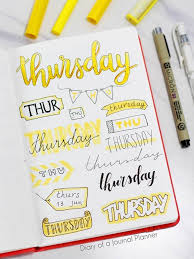 thursday
THUR
thursday
THURSDAY
THU
thursday
THURSDAY
THURSDAY
thurs
13 Jun
thursday
THURSDAY
THURSDAY
Diary of a Journal Planner